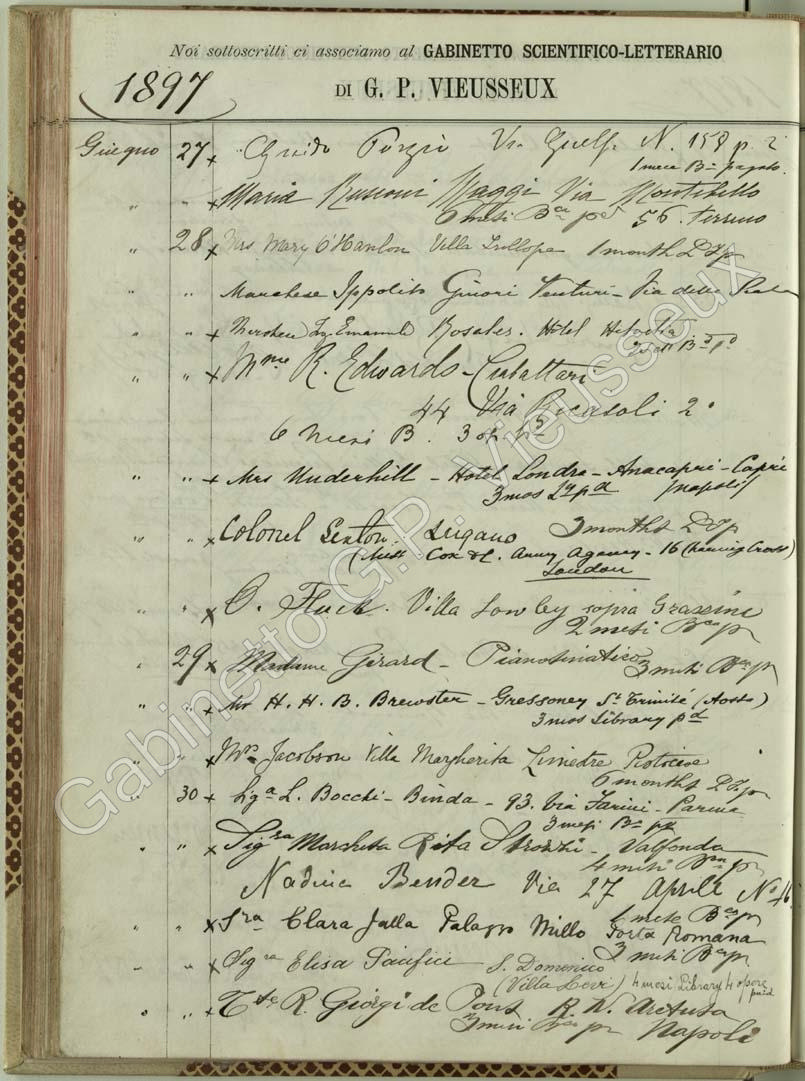 Noi sottoscritti ci associamo al GABINETTO SCIENTIFICO-LETTERARIO
1897
DI G. P. VIEUSSEUX
Giugno 27 x Guido Via Guelfa N. 158 p. 2
1 mese Bca pagato.
" " x Maria Rusconi Maggi Via Montebello
6 mesi Bca pd 56. Terreno
" 28 x Mrs Mary O'Hanlon Villa Trollope 1 month p
" " Marchese Ippolito Ginori Venturi - Via della Scala
" " x Emanuele Rosales. Hotel Helvetia
" " x Mme R. Edwards-
44 Via Ricasoli 2°
6 mesi B. 3 op. pd
" " x Mrs Underhill - Hotel Londra - Anacapri - Capri
3 mos Ly pd Napoli
" " x Colonel Sexton. Lugano 3 months p
( Cox & C. Army Agency - 16 Charing Cross)
London
" " x O. Villa sopra Grassina
2 mesi Bca p
" 29 x Madame Girard - 3 mesi Bca p
" " x Mr H. H. B. Brewster - Gressoney St Trinité (Aosta)
3 mos Library pd
" " x Mrs Jacobson Villa Margherita
6 months p
" 30 x Siga L. Bocchi-Binda - 93. Via Farini - Parma
3 mesi Bca pd
" " x Sigra Rita Strozzi - Valfonda
4 mesi Bca p
Nadine Bender Via 27 Aprile No 16
1 mese Bca p
" " x Sra Clara Jalla Palazzo Millo Porta Romana
3 mesi Bca p
" " x Sigra Elisa Pacifici S. Domenico
(Villa Levi) 4 mesi Library 4 opere paid
" " x R. Giorgi de Pons R. N. Aretusa
3 mesi Bca p Napoli
Gabinetto G.P. Vieusseux